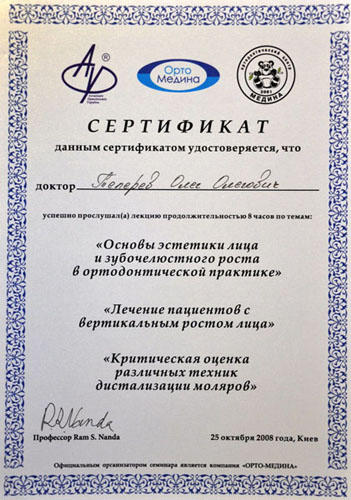 АР®
Орто
Медина
ортодонтический центр
2001
МЕДИНА
СЕРТИФИКАТ
данным сертификатом удостоверяется, что
доктор Олег Олегович
успешно прослушал(а) лекцию продолжительностью 8 часов по темам:
«Основы эстетики лица
и зубочелюстного роста
в ортодонтической практике»
«Лечение пациентов с
вертикальным ростом лица»
«Критическая оценка
различных техник
дистализации моляров»
R.S.Nanda
Профессор Ram S. Nanda
25 октября 2008 года, Киев
Официальным организатором семинара является компания «ОРТО-МЕДИНА»